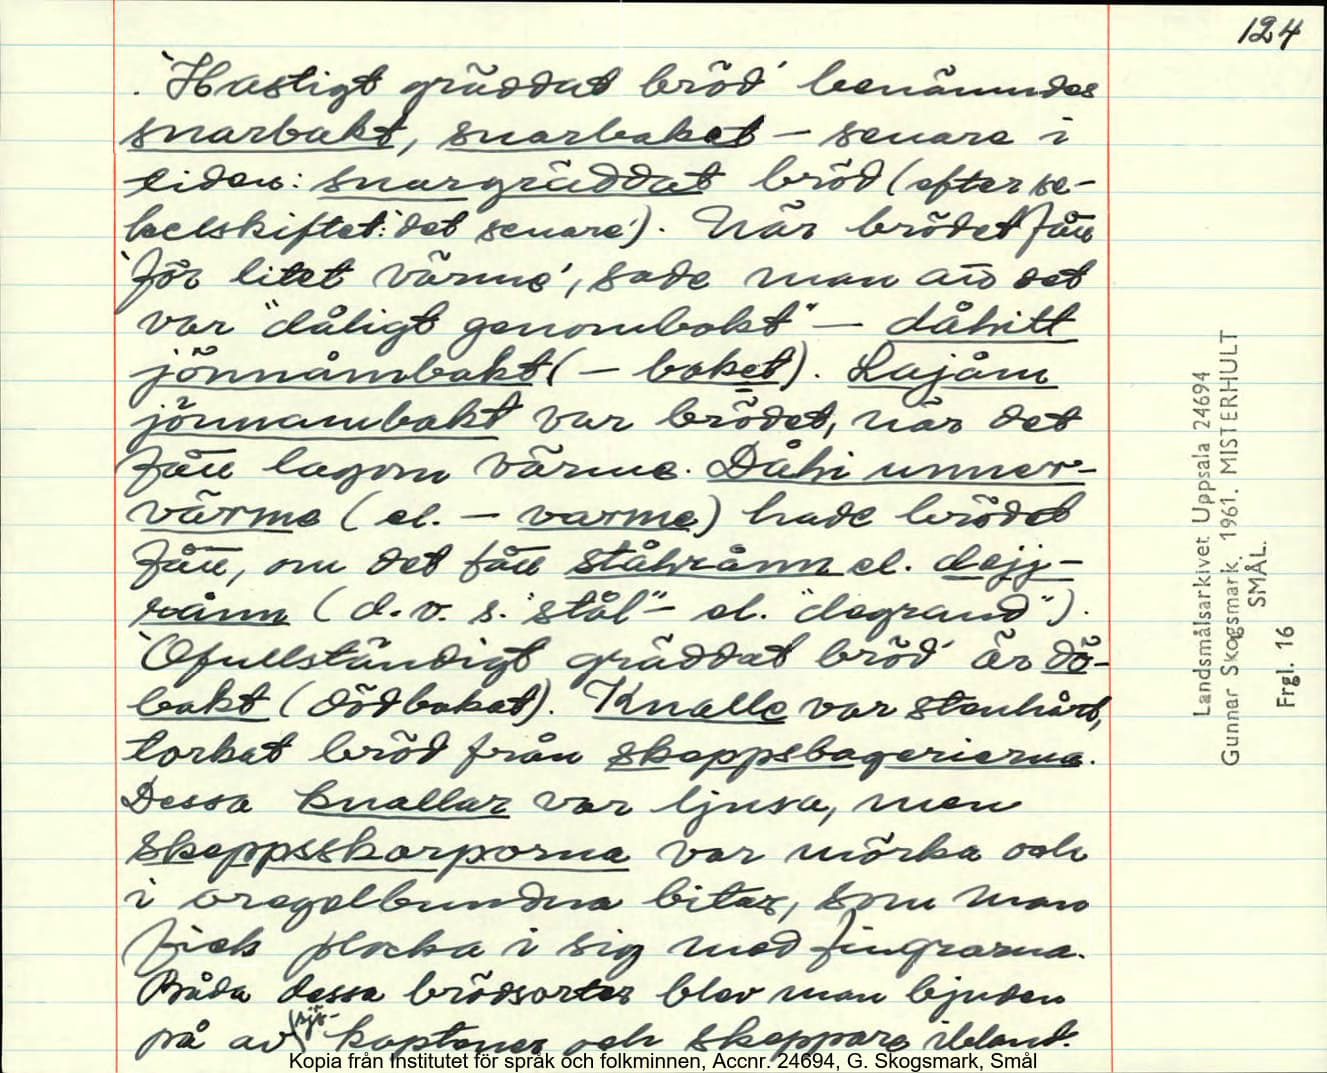 124
'Hastigt gräddat bröd' benämndes
snarbakt, snarbaket – senare i
tiden: snargräddat bröd (efter se-
kelskiftet: 'det senare'). När brödet fått
'för litet värme', sade man att det
var "dåligt genombakt" – dåhitt
jönnåmbakt (– baket). Lajåm
jönnambakt var brödet, när det
fått lagom värme. Dåhi unner-
värme (el. – varme) hade brödet
fått, om det fått ståhrånn el. dejj-
rånn (d.v.s. "stål"- el. "degrand").
'Ofullständigt gräddat bröd' är dö-
bakt (dödbakat). Knalle var stenhårt,
torkat bröd från skeppsbagerierna.
Dessa knallar var ljusa, men
skeppsskorporna var mörka och
i oregelbundna bitar, som man
fick plocka i sig med fingrarna.
Båda dessa brödsorter blev man bjuden
på av sjö-kaptener och skeppare ibland.
Landsmålsarkivet Uppsala 24694
Gunnar Skogsmark. 1961. MISTERHULT
SMÅL.
Frgl. 16
Kopia från Institutet för språk och folkminnen, Accnr. 24694, G. Skogsmark, Smål